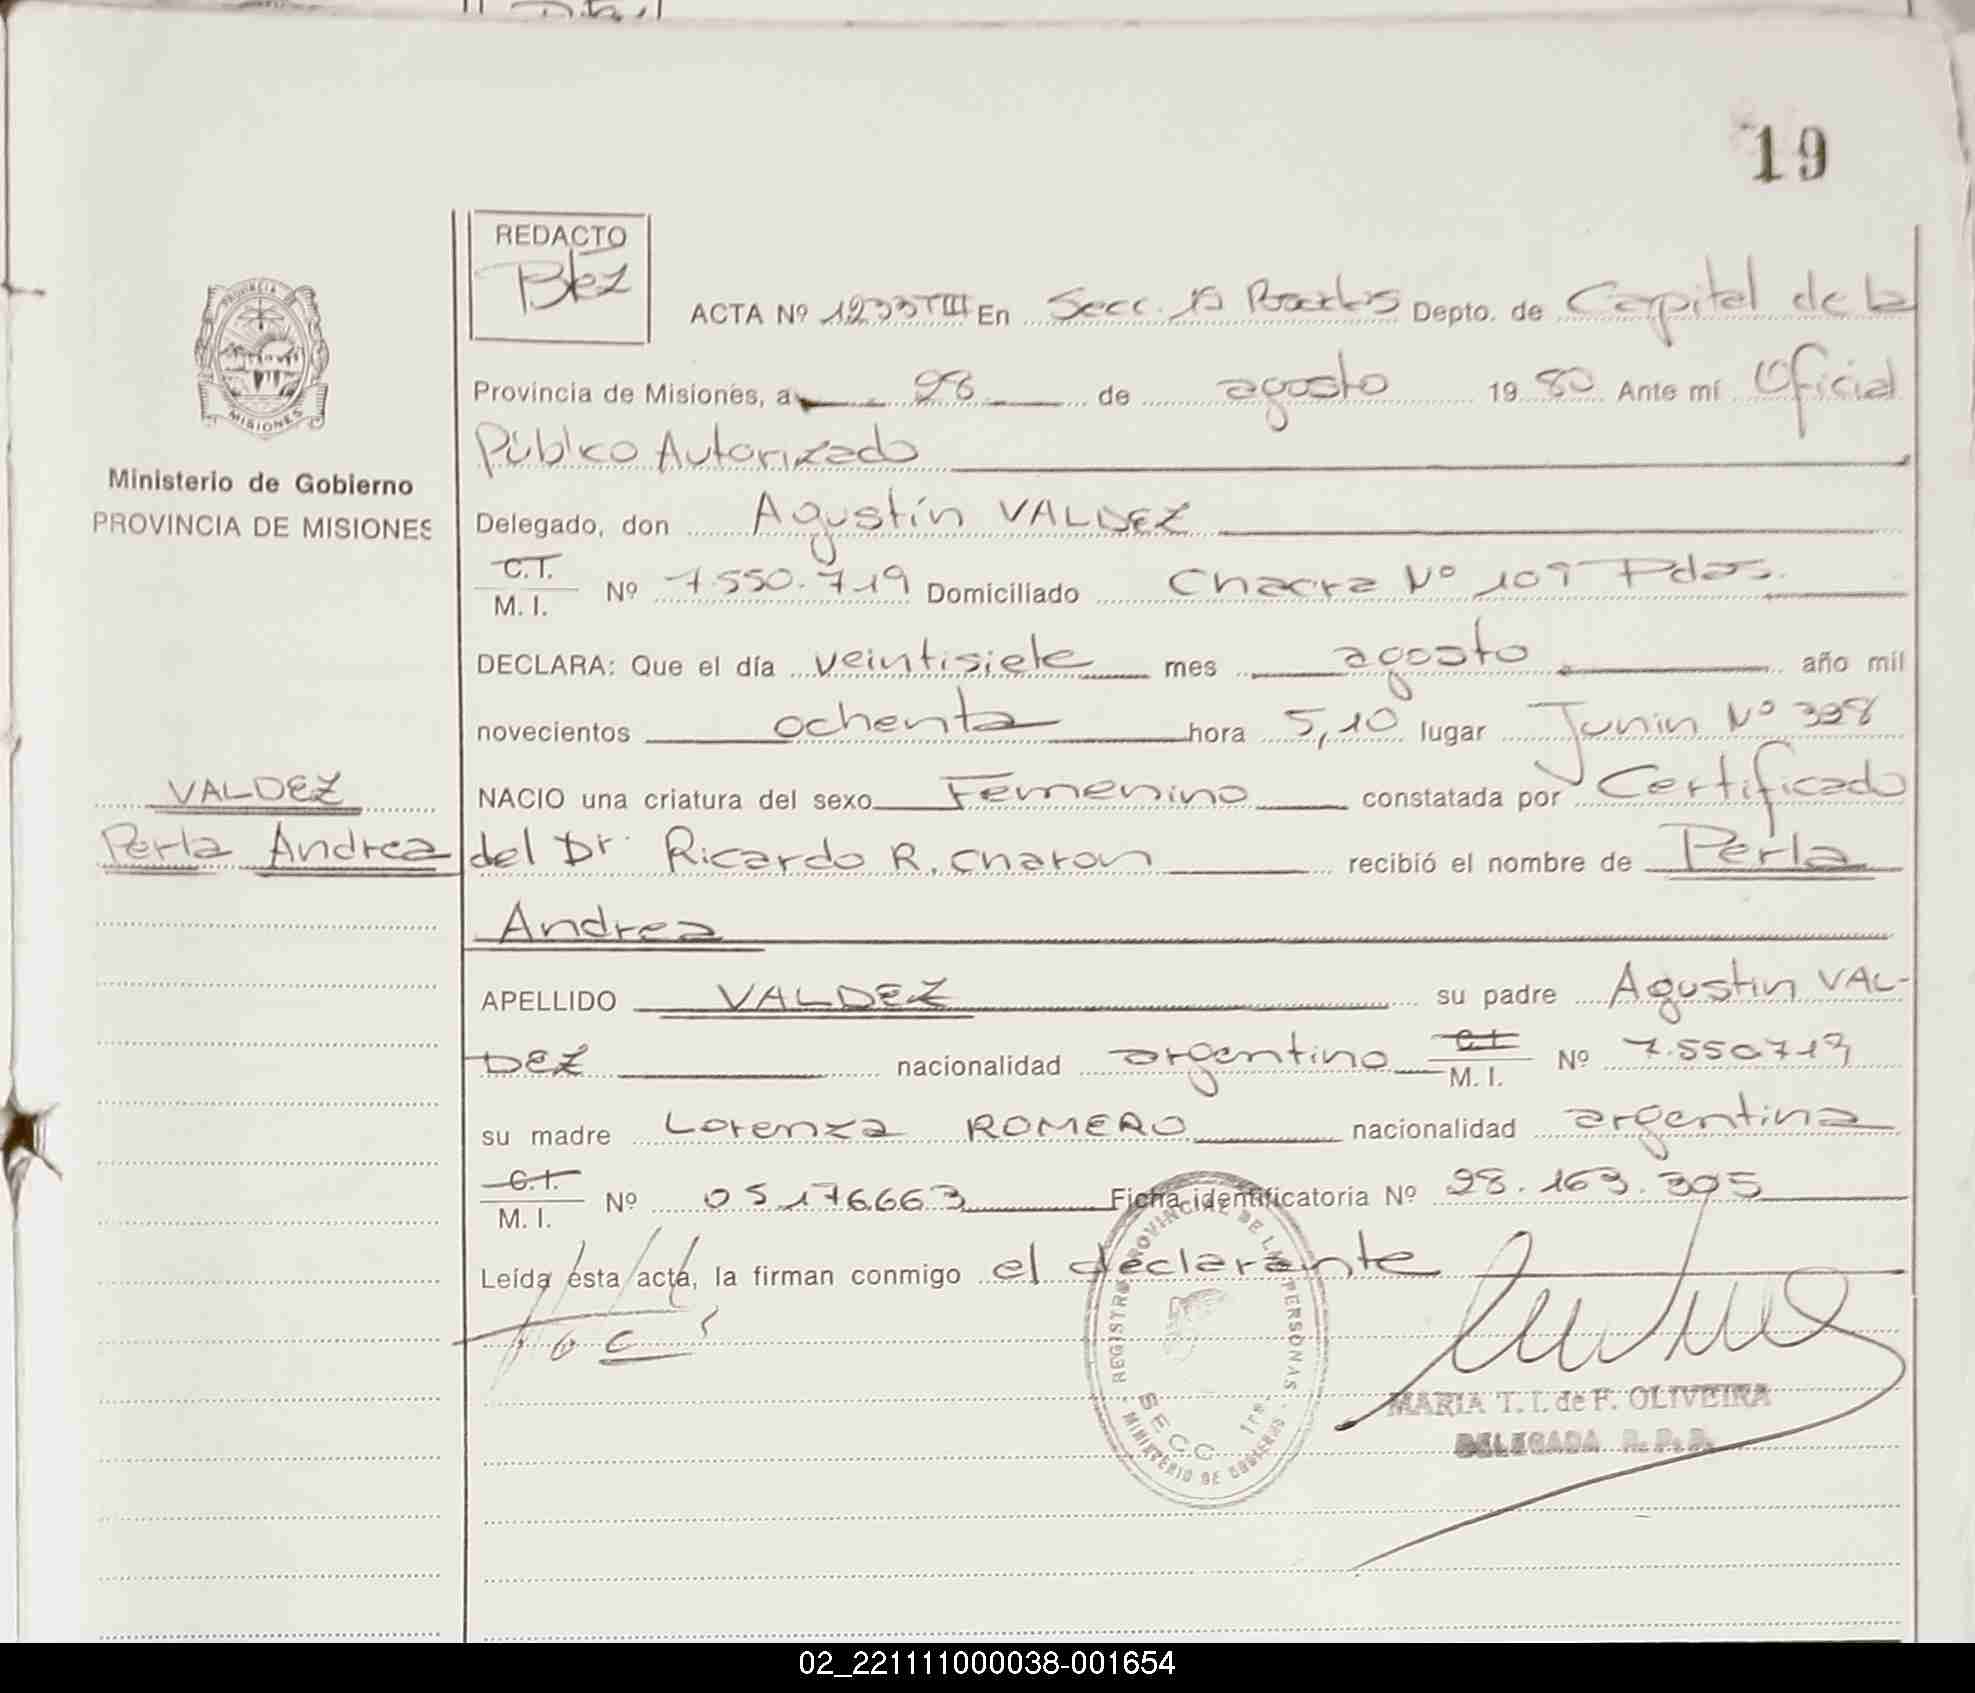 19
REDACTO
Bez
PROVINCIA
MISIONES
Ministerio de Gobierno
PROVINCIA DE MISIONES
ACTA Nº 1233 TIII En Secc. 1a Posadas Depto. de Capital de la
Provincia de Misiones, a 28 de agosto 1980 Ante mí Oficial
Público Autorizado
Delegado, don Agustín VALDEZ
C.T.
M. I. Nº 7.550.719 Domiciliado Chacra Nº 109 Pdas.
DECLARA: Que el día veintisiete mes agosto año mil
novecientos ochenta hora 5,10 lugar Junin Nº 398
VALDEZ
NACIO una criatura del sexo Femenino constatada por Certificado
Perla Andrea
del Dr. Ricardo R. Charon recibió el nombre de Perla
Andrea
APELLIDO VALDEZ su padre Agustin VAL-
DEZ nacionalidad argentino C.I. M. I. Nº 7.550719
su madre Lorenza ROMERO nacionalidad argentina
C.I.
M. I. Nº 05176663 Ficha identificatoria Nº 28.163.395
Leída esta acta, la firman conmigo el declarante
REGISTRO PROVINCIAL DE LAS PERSONAS
SECC 1ra.
MINISTERIO DE GOBIERNO
MARIA T. I. de F. OLIVEIRA
DELEGADA R. P. P.
02_221111000038-001654